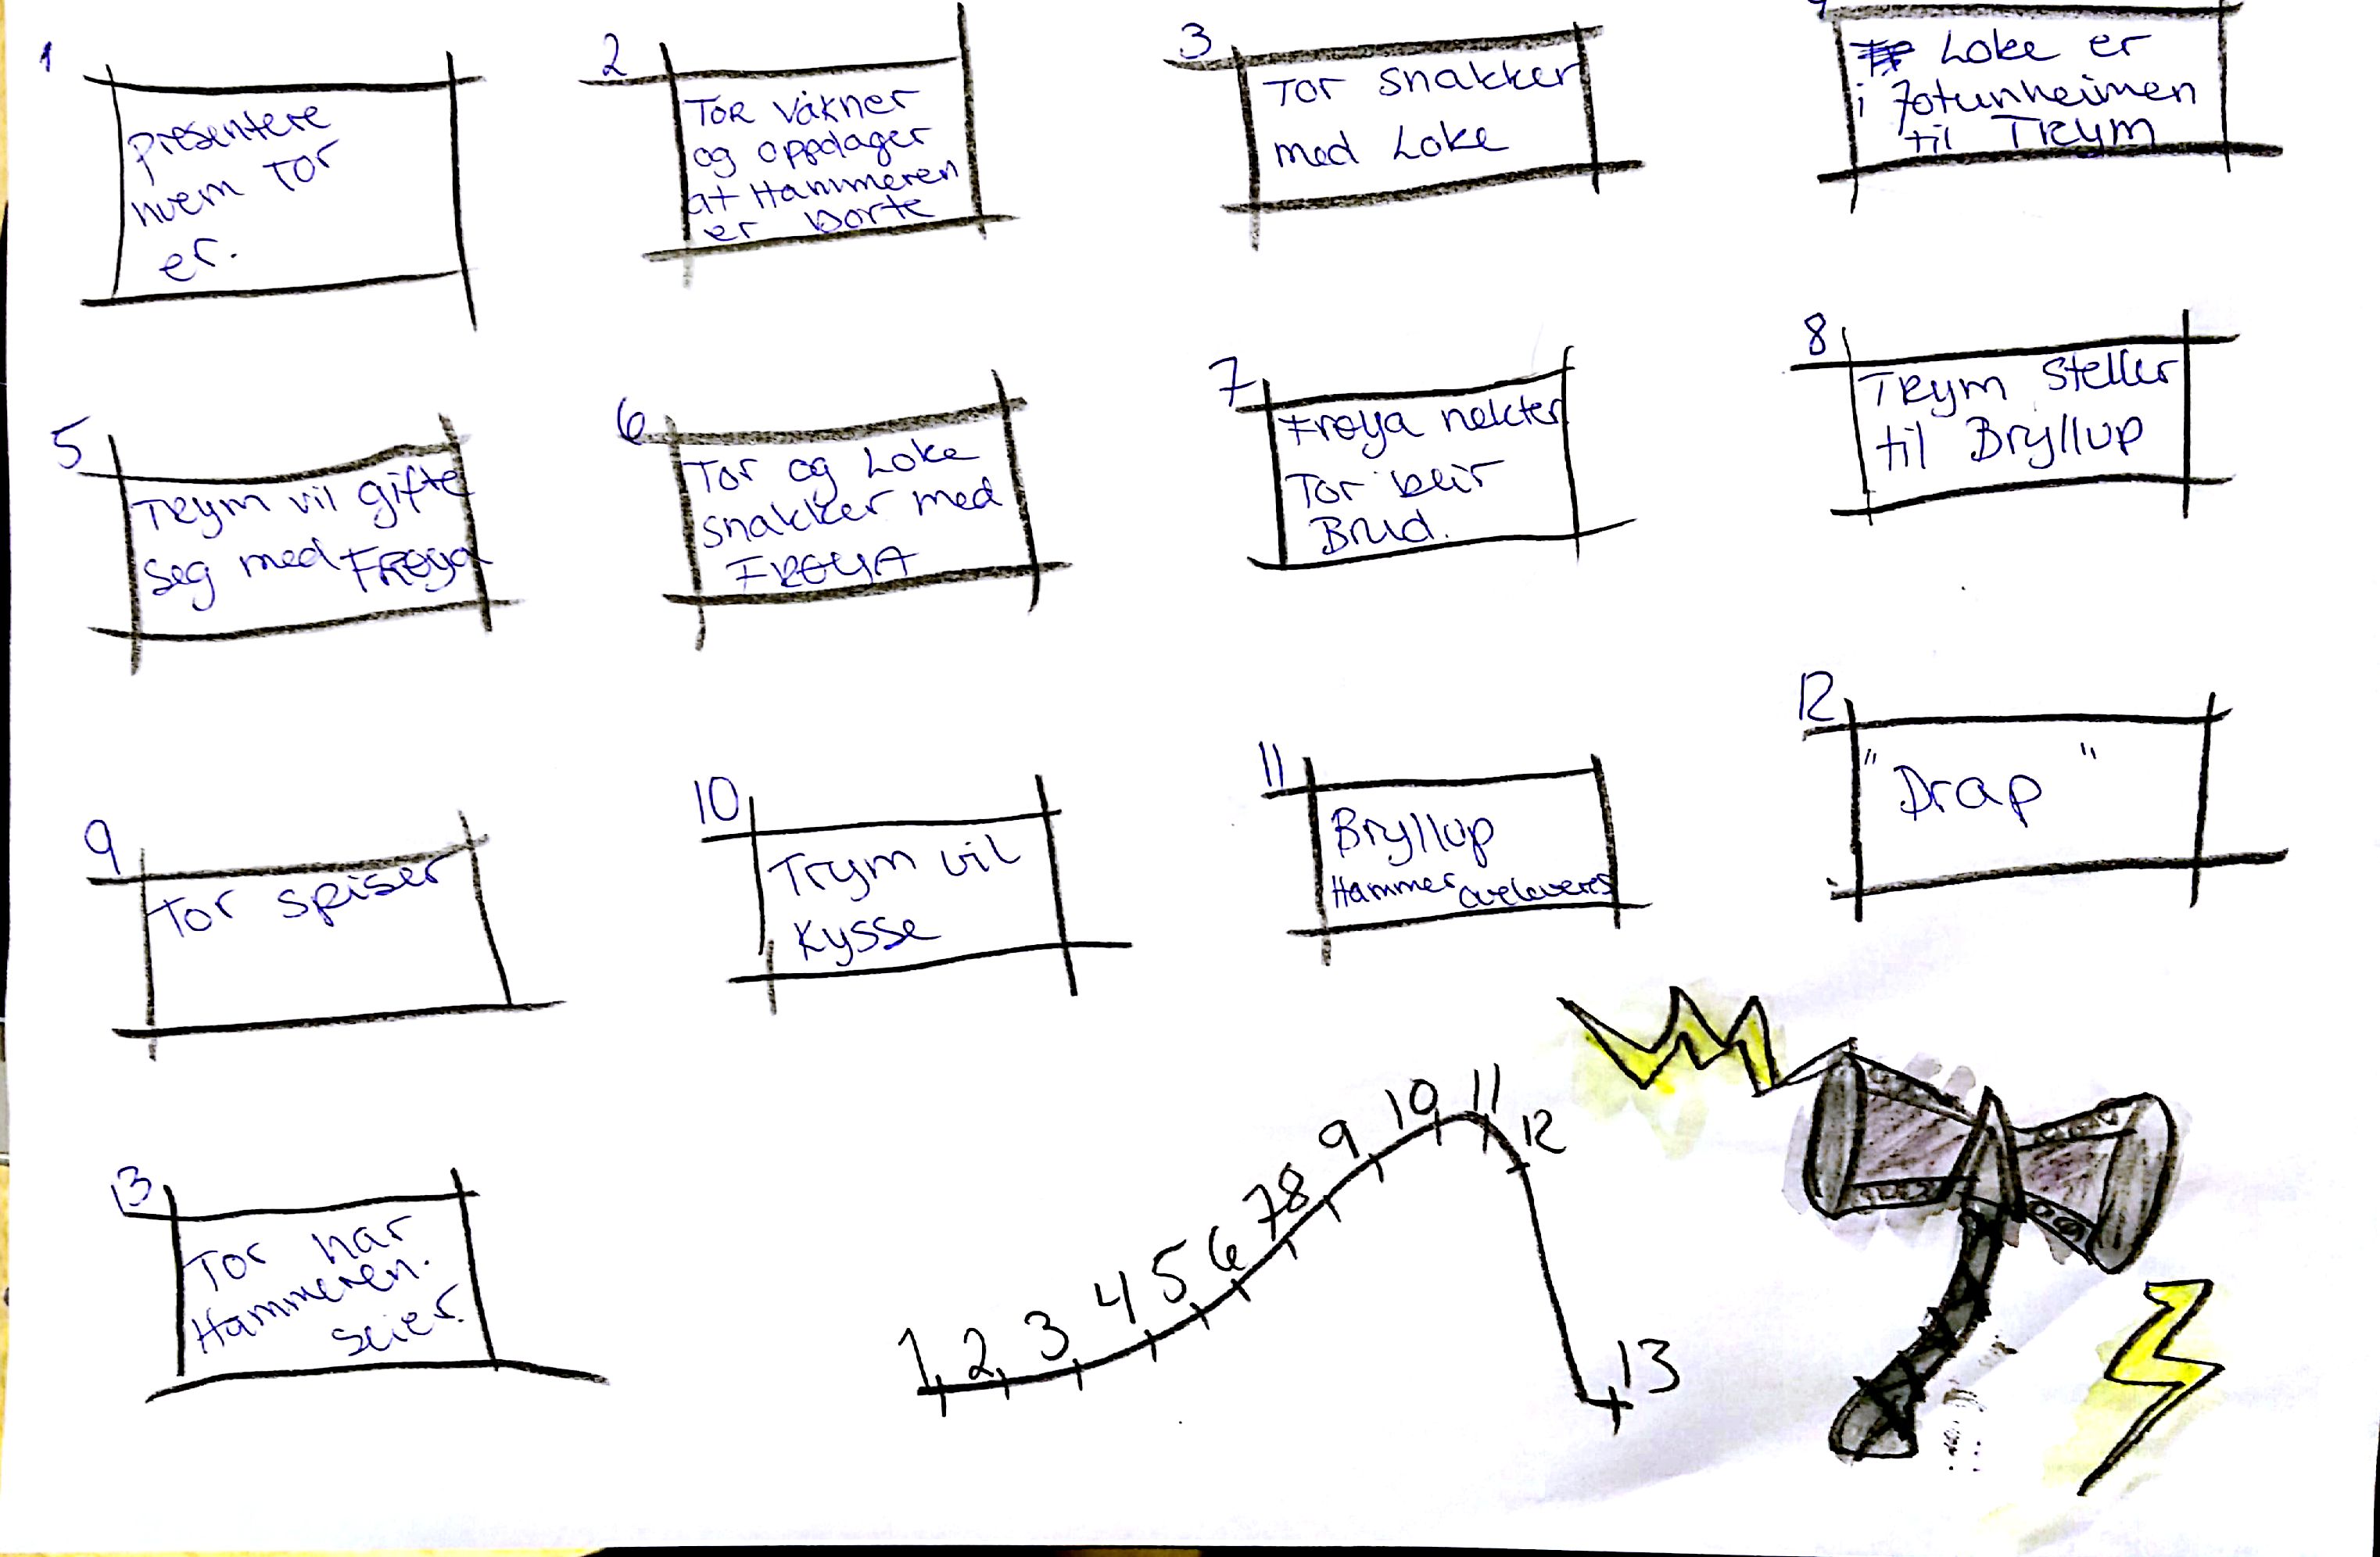 1
presentere
hvem Tor
er.
2
Tor våkner
og oppdager
at Hammeren
er borte
3
Tor snakker
med Loke
Loke er
i Jotunheimen
til Trym
5
Trym vil gifte
seg med Frøya
6
Tor og Loke
snakker med
FRØYA
7
Frøya nekter
Tor blir
Brud.
8
Trym steller
til Bryllup
9
Tor spiser
10
Trym vil
Kysse
11
Bryllup
Hammer overleveres
12
"Drap"
13
Tor har
Hammeren.
seier.
1 2 3 4 5 6 7 8 9 10 11 12 13